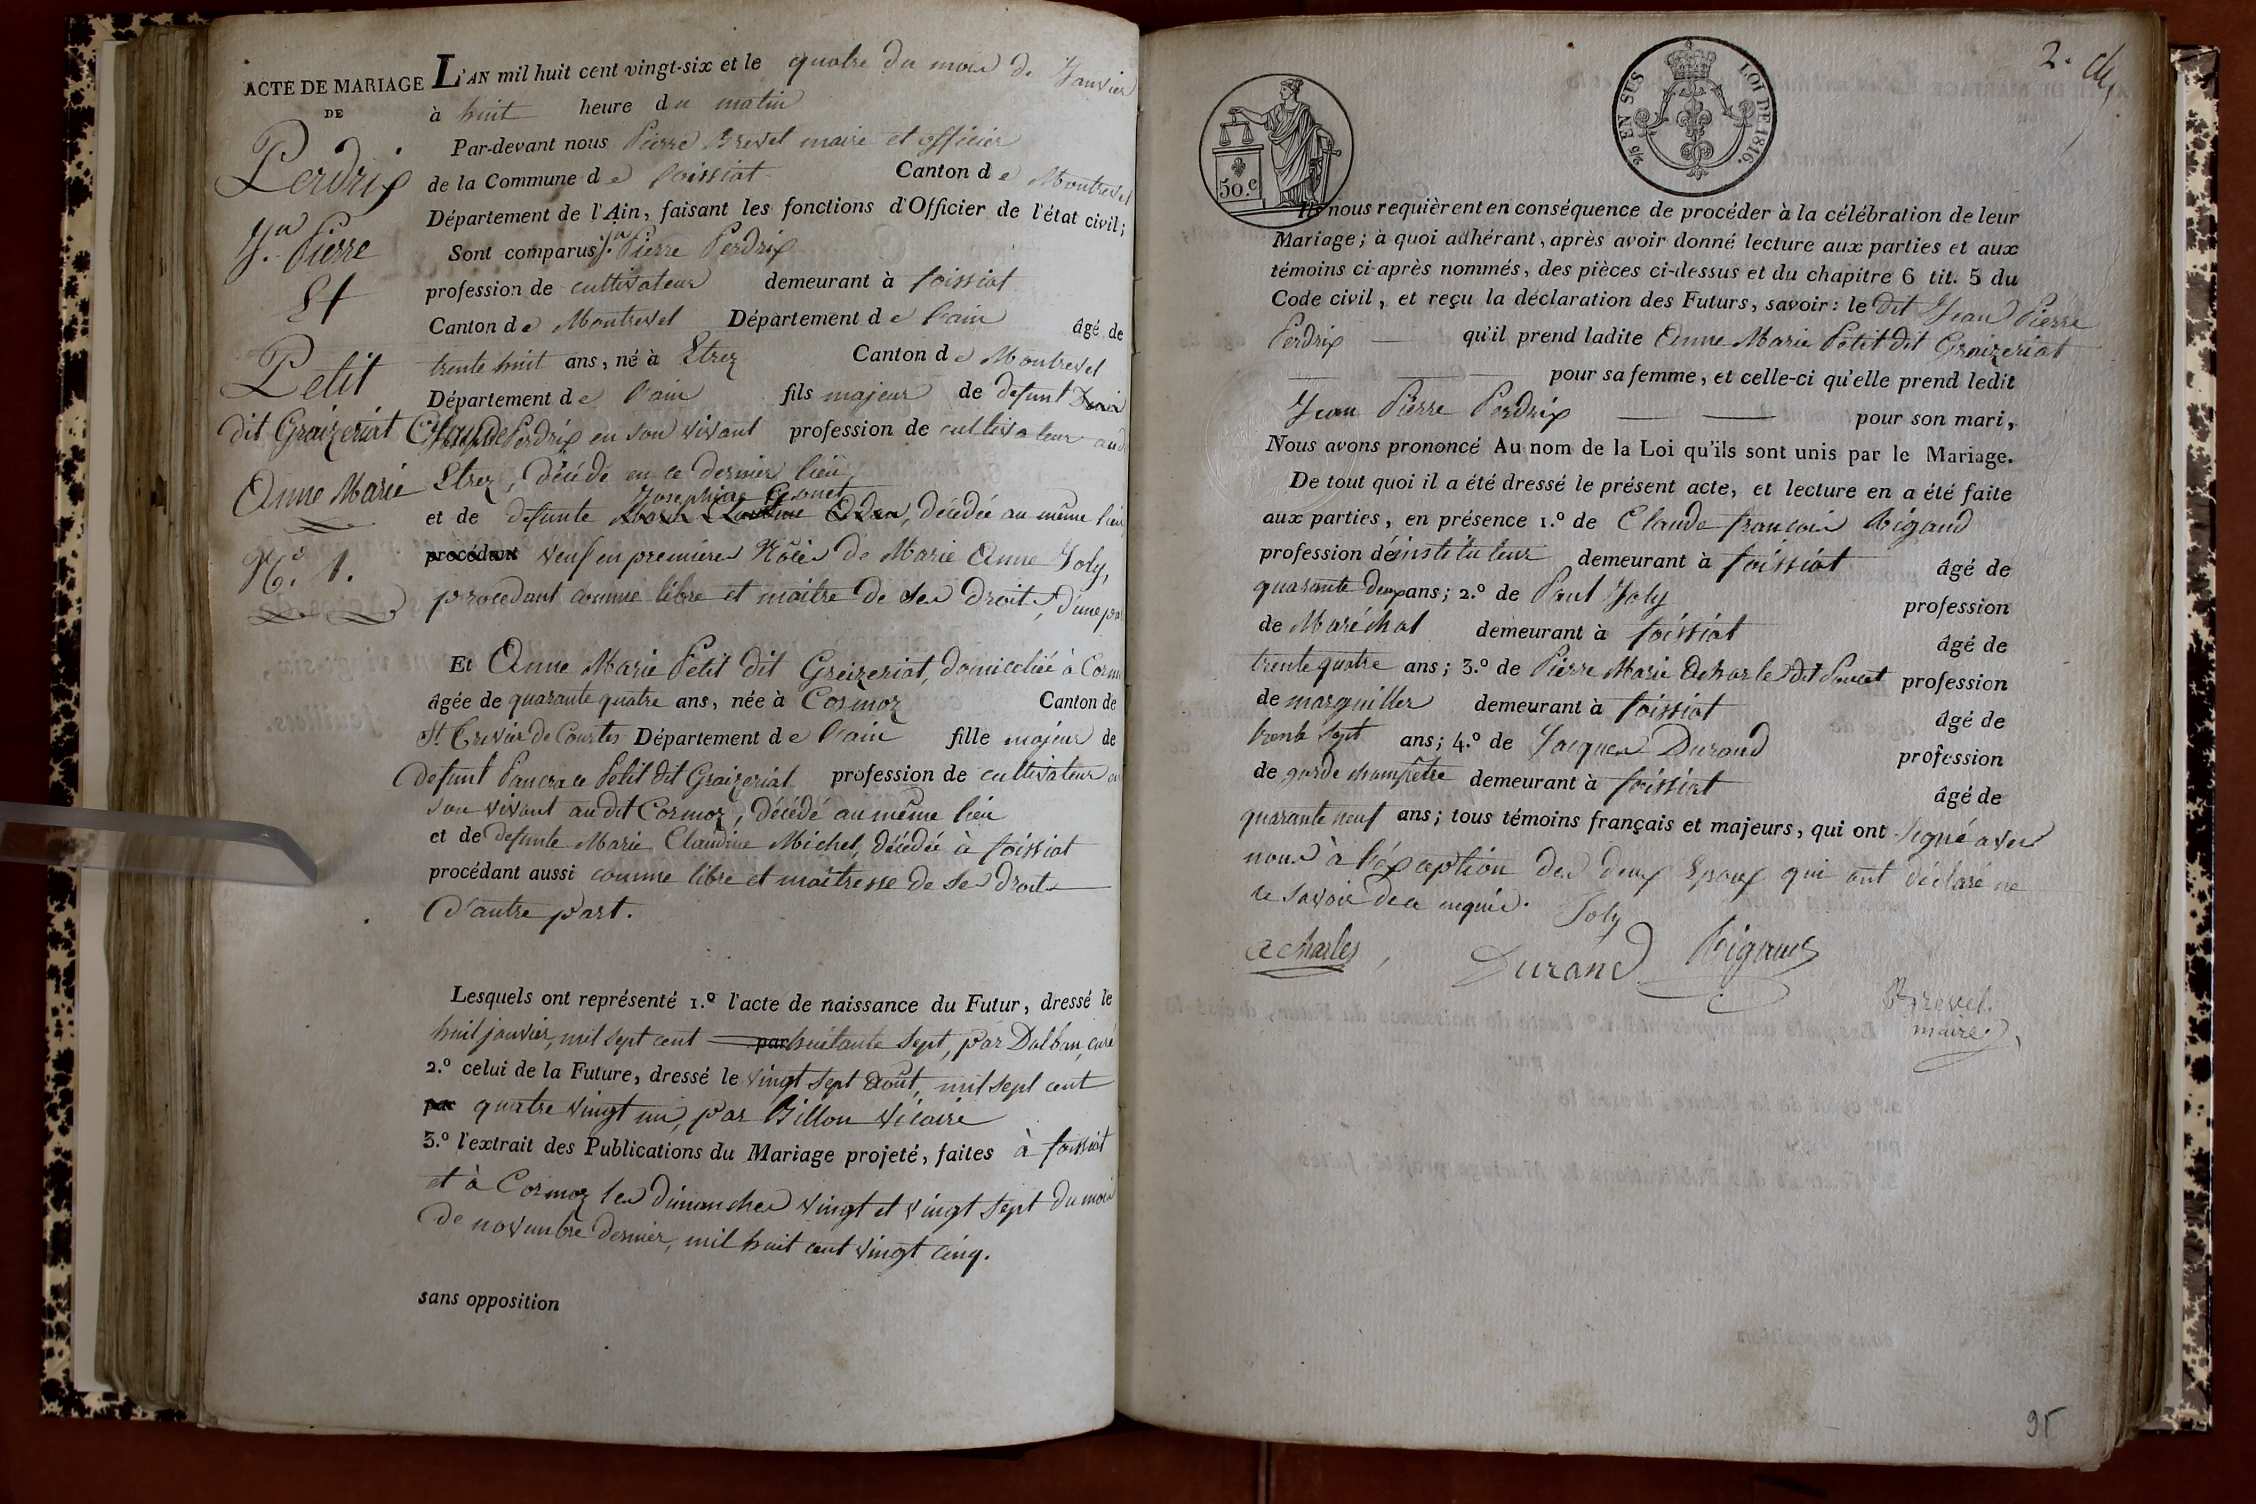 ACTE DE MARIAGE
DE
Perdrix
Jn. Pierre
Et
Petit
dit Graizeriat
Anne Marie
No. 1.
L'AN mil huit cent vingt-six et le quatre du mois de Janvier
à huit heure du matin
Par-devant nous Pierre Brevet maire et officier
de la Commune de foissiat Canton de Montrevel
Département de l'Ain, faisant les fonctions d'Officier de l'état civil;
Sont comparus Jn. Pierre Perdrix
profession de cultivateur demeurant à foissiat
Canton de Montrevel Département de l'ain âgé de
trente huit ans, né à Etrez Canton de Montrevel
Département de l'ain fils majeur de defunt
Claude Perdrix en son vivant profession de cultivateur aud
Etrez, décédé en ce dernier lieu
Josephine
et de defunte Marie Claudine, décédée au même lieu
procédant veuf en premieres Nôces de Marie Anne Joly,
procedant comme libre et maitre de ses droits, d'une part
Et Anne Marie Petit dit Greizeriat, domiciliée à Cormoz
âgée de quarante quatre ans, née à Cormoz Canton de
St. Trivier de Courtes Département de l'ain fille majeur de
defunt Pancrace Petit dit Graizeriat profession de cultivateur en
son vivant audit Cormoz, décédé au même lieu
et de defunte Marie Claudine Michel, décédée à foissiat
procédant aussi comme libre et maitresse de ses droits
d'autre part.
Lesquels ont représenté 1.º l'acte de naissance du Futur, dressé le
huit janvier, mil sept cent par huitante sept, par Dalban, curé
2.º celui de la Future, dressé le vingt sept août, mil sept cent
par quatre vingt un, par Billon vicaire
3.º l'extrait des Publications du Mariage projeté, faites à foissiat
et à Cormoz les dimanches vingt et vingt sept du mois
de novembre dernier, mil huit cent vingt cinq.
sans opposition
2.
50.c
25/100 EN SUS
LOI DE 1816.
Ils nous requièrent en conséquence de procéder à la célébration de leur
Mariage; à quoi adhérant, après avoir donné lecture aux parties et aux
témoins ci-après nommés, des pièces ci-dessus et du chapitre 6 tit. 5 du
Code civil, et reçu la déclaration des Futurs, savoir: le dit Jean Pierre
Perdrix qu'il prend ladite Anne Marie Petit dit Graizeriat
pour sa femme, et celle-ci qu'elle prend ledit
Jean Pierre Perdrix pour son mari,
Nous avons prononcé Au nom de la Loi qu'ils sont unis par le Mariage.
De tout quoi il a été dressé le présent acte, et lecture en a été faite
aux parties, en présence 1.º de Claude françois Rigaud
profession d'instituteur demeurant à foissiat âgé de
quarante deux ans; 2.º de Paul Joly profession
de Maréchal demeurant à foissiat âgé de
trente quatre ans; 3.º de Pierre Marie Acharles dit profession
de marguiller demeurant à foissiat âgé de
trente sept ans; 4.º de Jacques Durand profession
de garde champêtre demeurant à foissiat âgé de
quarante neuf ans; tous témoins français et majeurs, qui ont signé avec
nous à l'éxception des deux Epoux qui ont déclaré ne
le savoir de ce enquis.
Joly
acharles
Durand
Rigaud
Brevet.
maire
95